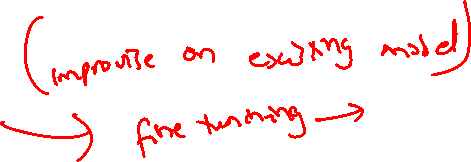 (improvise on existing model)
→ fine tunning →